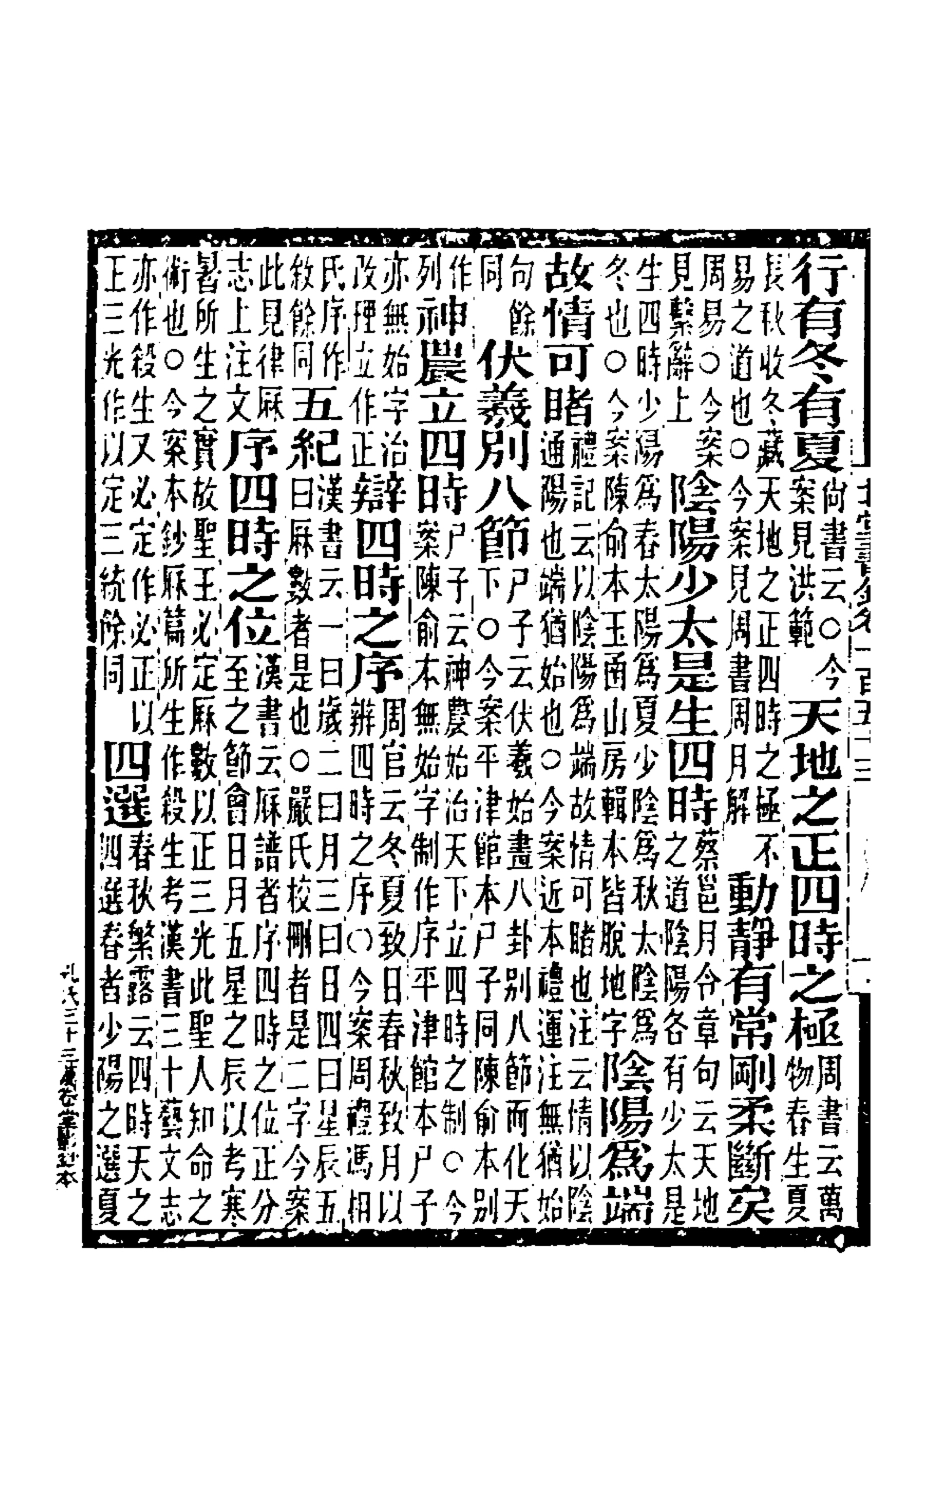 行有冬有夏尚書云○今案見洪範天地之正四時之極周書云萬物春生夏
長秋收冬藏天地之正四時之極不易之道也○今案見周書周月解動靜有常剛柔斷矣
周易○今案見繫辭上陰陽少太是生四時蔡邕月令章句云天地之道陰陽各有少太是
生四時少陽爲春太陽爲夏少陰爲秋太陰爲冬也○今案陳俞本玉函山房輯本皆脫地字陰陽爲端
故情可睹禮記云以陰陽爲端故情可睹也注云情以陰通陽也端猶始也○今案近本禮運注無猶始
句餘同伏羲別八節尸子云伏羲始畫八卦別八節而化天下○今案平津館本尸子同陳俞本別
作列神農立四時尸子云神農始治天下立四時之制○今案陳俞本無始字制作序平津館本尸子
亦無始字治改理立作正辯四時之序周官云冬夏致日春秋致月以辨四時之序○今案周禮馮相
氏序作敘餘同五紀漢書云一曰歲二曰月三曰日四曰星辰五曰厤數者是也○嚴氏校刪者是二字今案
此見律厤志上注文序四時之位漢書云厤譜者序四時之位正分至之節會日月五星之辰以考寒
暑所生之實故聖王必定厤數以正三光此聖人知命之術也○今案本鈔厤篇所生作殺生考漢書三十藝文志
亦作殺生又必定作必正以正三光作以定三統餘同四選春秋繁露云四時天之四選春者少陽之選夏